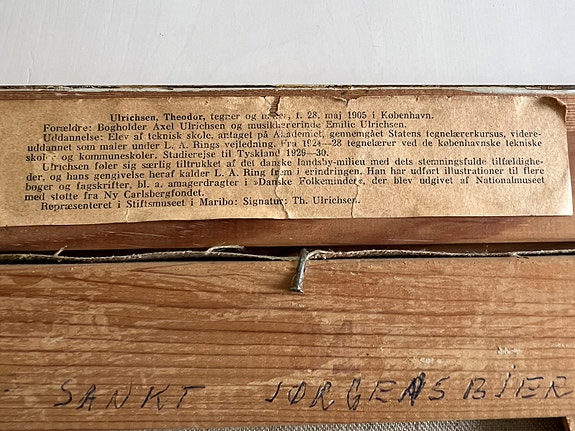 Ulrichsen, Theodor, tegner og f. 28. maj 1905 i København.
Forældre: Bogholder Axel Ulrichsen og musiklærerinde Emilie Ulrichsen.
Uddannelse: Elev af teknisk skole, antaget på Akademiet, gennemgået Statens tegnelærerkursus, videre-
uddannet som maler under L. A. Rings vejledning. Fra 1924—28 tegnelærer ved de københavnske tekniske
skoler og kommuneskoler. Studierejse til Tyskland 1929—30.
Ulrichsen føler sig særlig tiltrukket af det danske landsby-milieu med dets stemningsfulde tilfældighe-
der, og hans gengivelse heraf kalder L. A. Ring frem i erindringen. Han har udført illustrationer til flere
bøger og fagskrifter, bl. a. amagerdragter i »Danske Folkeminder«, der blev udgivet af Nationalmuseet
med støtte fra Ny Carlsbergfondet.
Repræsenteret i Stiftsmuseet i Maribo: Signatur: Th. Ulrichsen.
SANKT JØRGENSBJERG